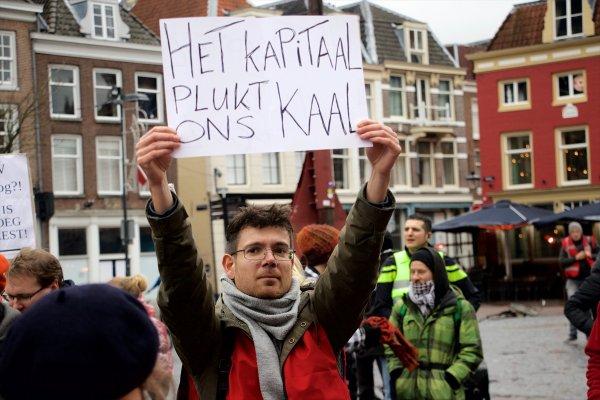 HET KAPITAAL
PLUKT
ONS KAAL
IS